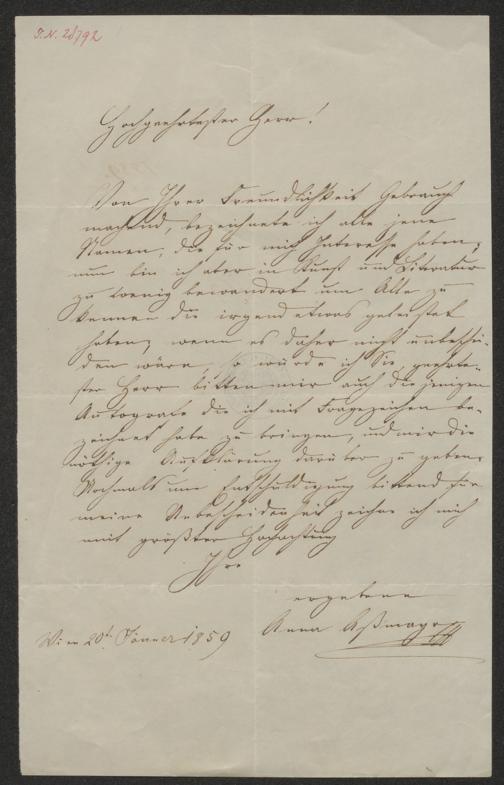 I.N. 28792
Hochgeehrtester Herr!
Von Ihrer Freundlichkeit Gebrauch
machend, bezeichnete ich alle jene
Namen, die für mich Interesse haben,
nun bin ich aber in Kunst und Literatur
zu wenig bewandert um Alle zu
kennen die irgend etwas geleistet
haben, wenn es daher nicht unbeschei-
den wäre, so würde ich Sie, geehrte-
ster Herr bitten mir auch diejenigen
Autografe die ich mit Fragezeichen be-
zeichnet habe zu bringen, und mir die
nöthige Aufklärung darüber zu geben.
Nochmals um Entschuldigung bittend für
meine Unbescheidenheit zeichne ich mich
mit größter Hochachtung
Ihre
ergebene
Anna Aßmayr
Wien 20t Jänner 1859